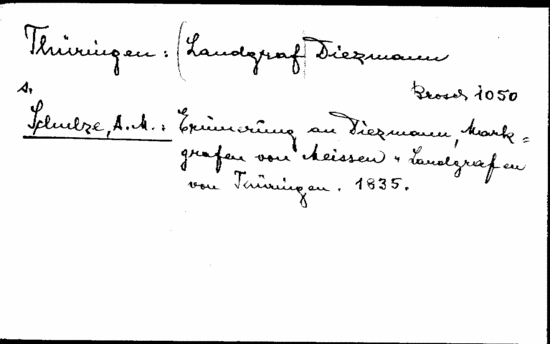 Thüringen: (Landgraf) Diezmann
s. Brosch 1050
Schulze, A. M.: Erinnerung an Diezmann, Mark=
grafen von Meissen u Landgrafen
von Thüringen. 1835.